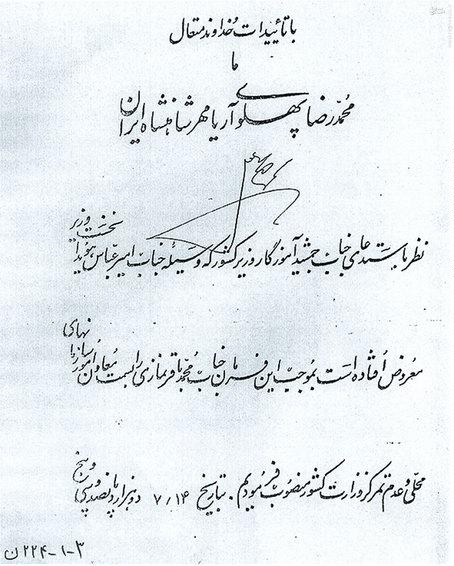 با تأییدات خداوند متعال
ما
محمّدرضا پهلوی آریامهر شاهنشاه ایران
نظر باستدعای جناب جمشید آموزگار وزیر کشور که وسیله جناب امیرعبّاس هویدا نخست وزیر
معروض افتاده است بموجب این فرمان جناب محمّدباقر نمازی را بسمت معاون امور سازمانهای
محلّی و عدم تمرکز وزارت کشور منصوب فرمودیم. بتاریخ ۷/۱۴ دوهزار و پانصد و سی و پنج
۲۲۴-۱-۳ ن